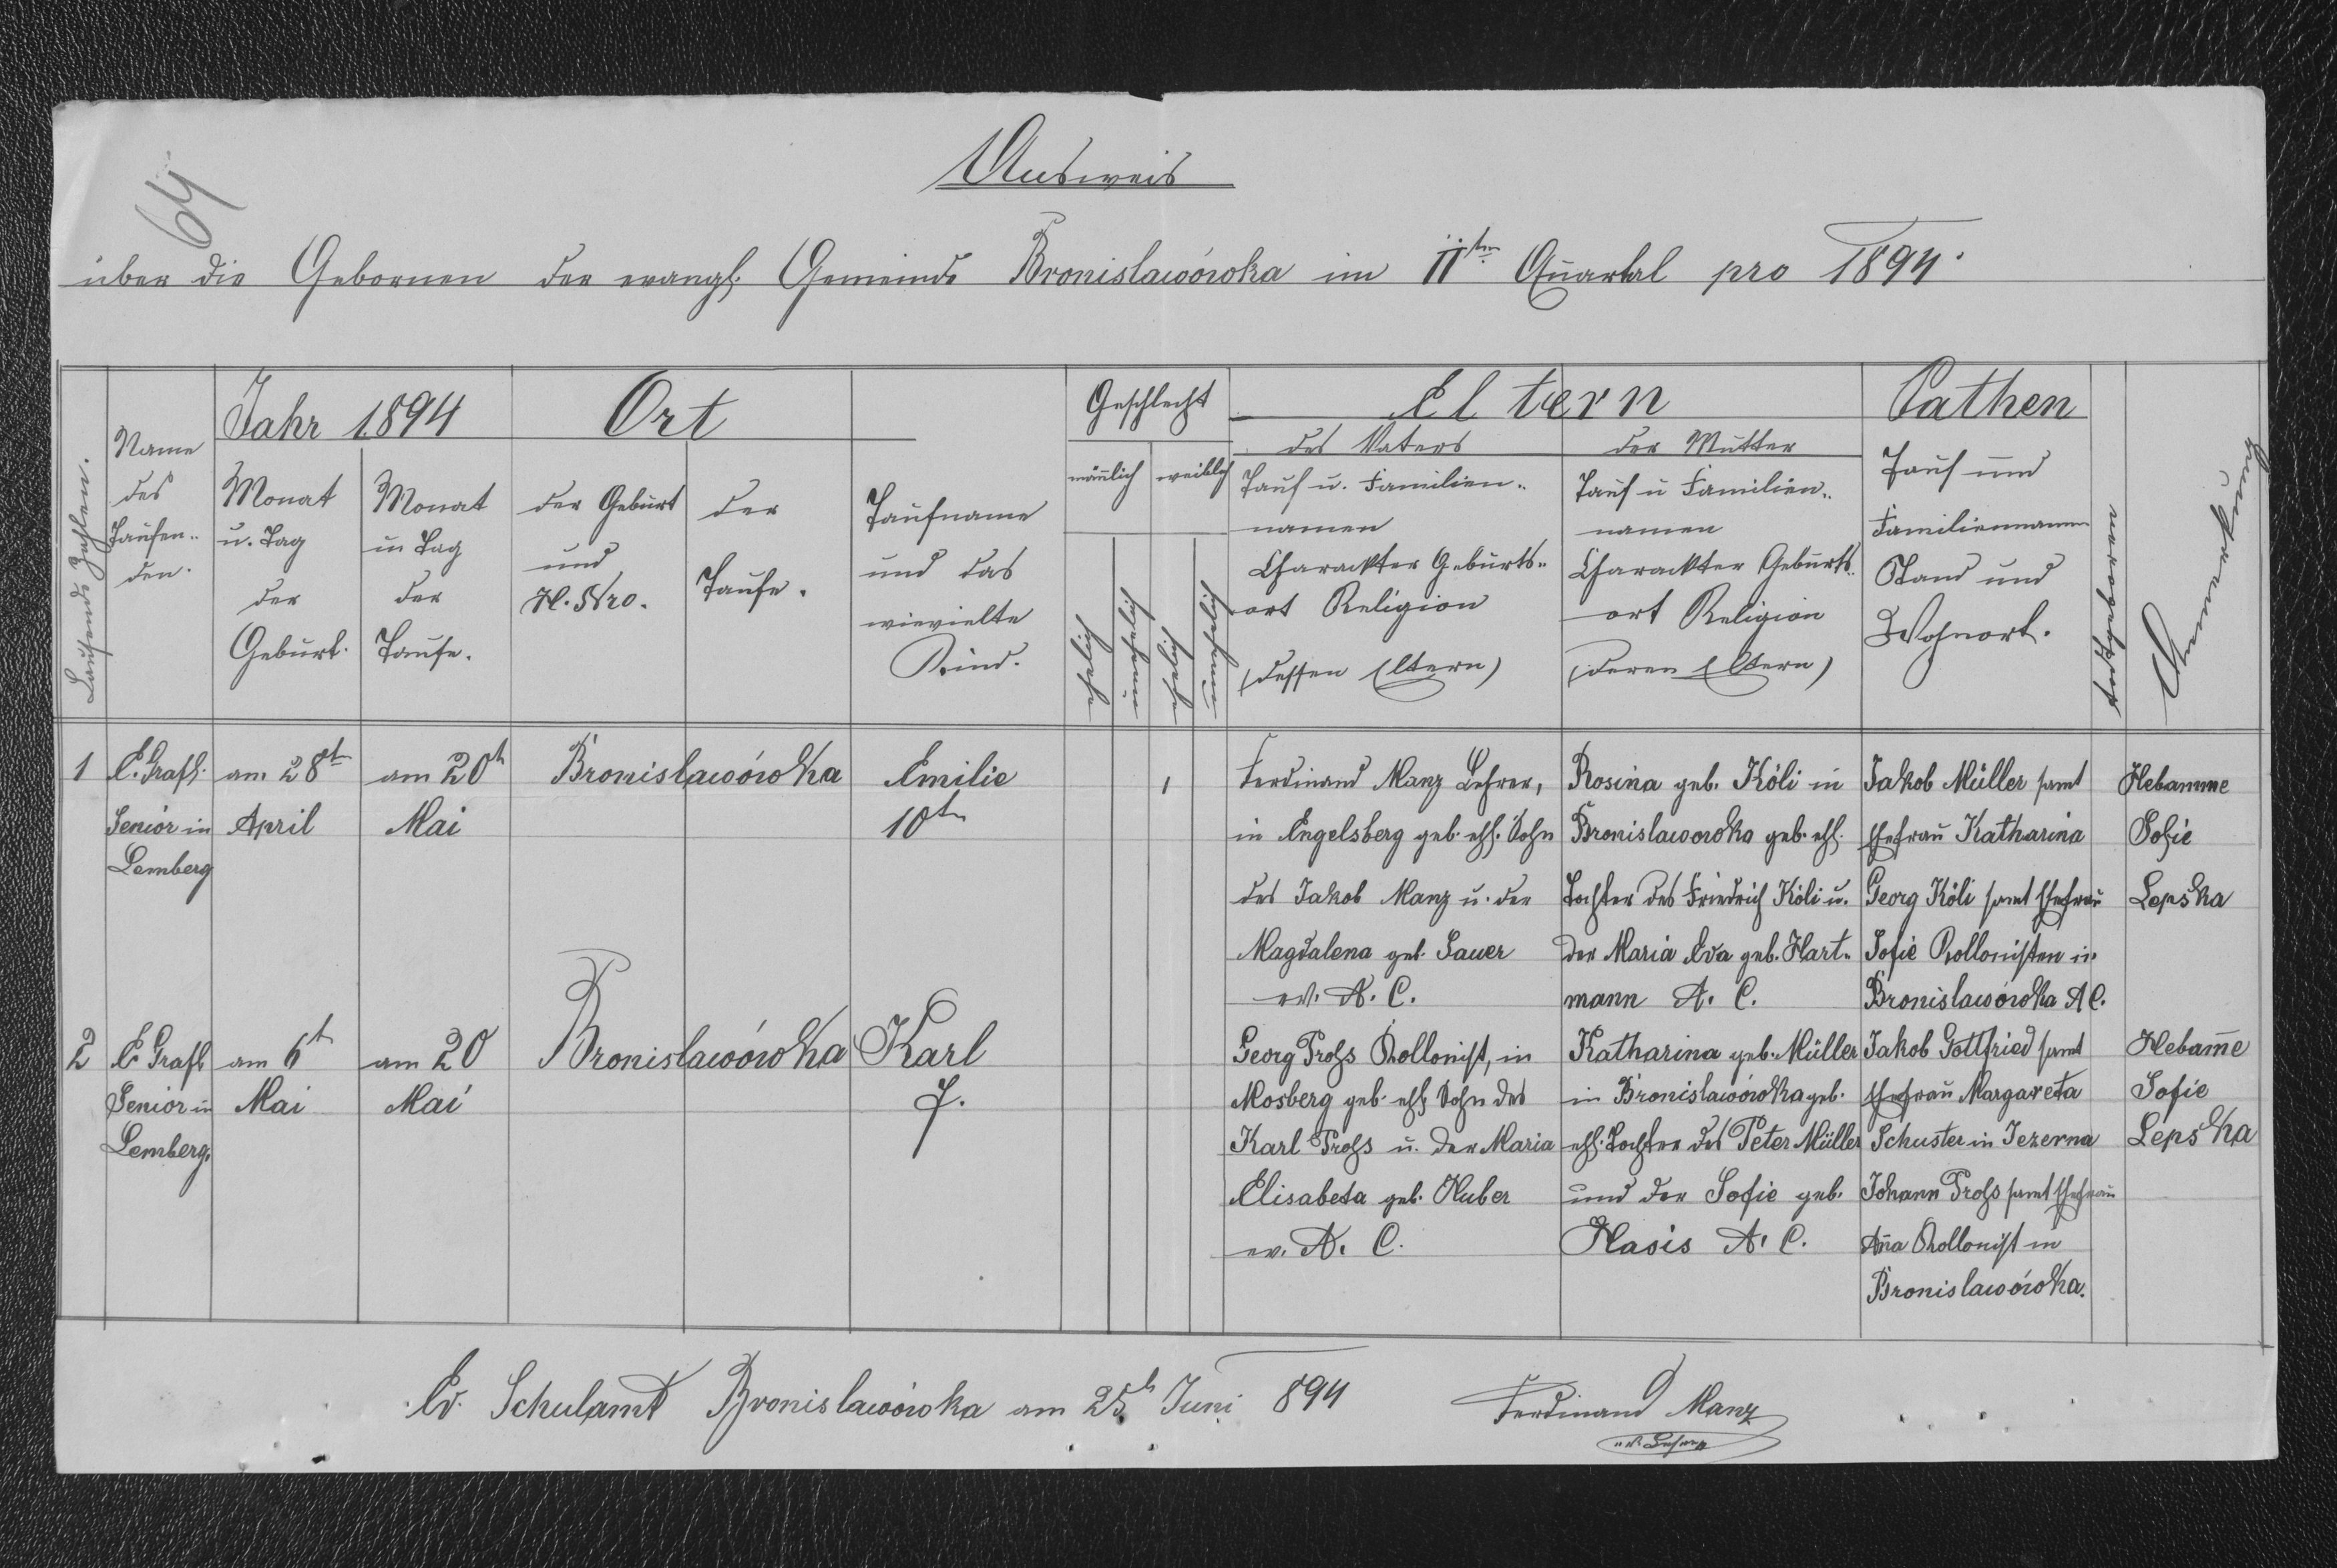 64
Ausweis
über die Gebornen der evangl. Gemeinde Bronislawówka im IIten Quartal pro 1894.
Laufende Zahlen.
Name des Taufenden.
Jahr 1894
Monat u. Tag der Geburt.
Monat u Tag der Taufe.
Ort
der Geburt und H. Nro.
der Taufe.
Taufname und das wievielte Kind.
Geschlecht
mänlich weiblich
ehelich
unehelich
ehelich
unehelich
Eltern
des Vaters
Tauf u. Familien-
namen
Charackter Geburts-
ort Religion
(dessen Eltern)
der Mutter
Tauf u Familien-
namen
Charackter Geburts-
ort Religion
(deren Eltern)
Pathen
Tauf und
Familiennamen
Stand und
Wohnort.
Anmerkung
1
E. Grafl.
Senior in
Lemberg
am 28t
April
am 20t
Mai
Bronislawówka
Emilie
10te
1
Ferdinand Manz Lehrer,
in Engelsberg geb. ehl. Sohn
des Jakob Manz u. der
Magdalena geb. Sauer
ev. A. C.
Rosina geb. Köli in
Bronislawowka geb. ehl.
Tochter des Friedrich Köli u.
der Maria Eva geb. Hart-
mann A. C.
Jakob Müller samt
Ehefrau Katharina
Georg Köli samt Ehefrau
Sofie Kollonisten in
Bronislawówka A C.
Hebamme
Sofie
Lepska
2
E Grafl
Senior in
Lemberg.
am 6t
Mai
am 20
Mai
Bronislawówka
Karl
7.
Georg Prohs Kollonist, in
Mosberg geb. ehl Sohn des
Karl Prohs u. der Maria
Elisabeta geb. Huber
ev. A. C.
Katharina geb. Müller
in Bronislawówka geb.
ehl. Tochter des Peter Müller
und der Sofie geb.
Hasis A. C.
Jakob Gottfried samt
Ehefrau Margareta
Schuster in Jezerna
Johann Prohs samt Ehefrau
Aña Kollonist in
Bronislawówka.
Hebam̅e
Sofie
Lepska
Ev. Schulamt Bronislawówka am 25t Juni 894
Ferdinand Manz
ev. Lehrer